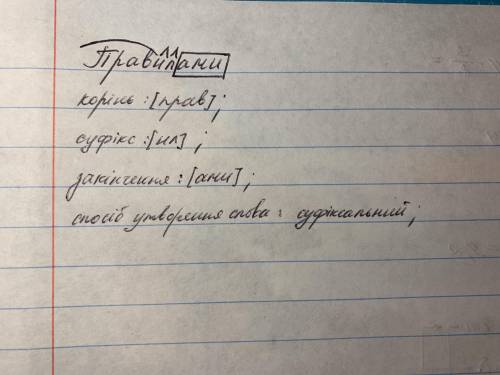 Правилами
корінь : [прав] ;
суфікс : [ил] ;
закінчення : [ами] ;
спосіб утворення слова : суфіксальний ;